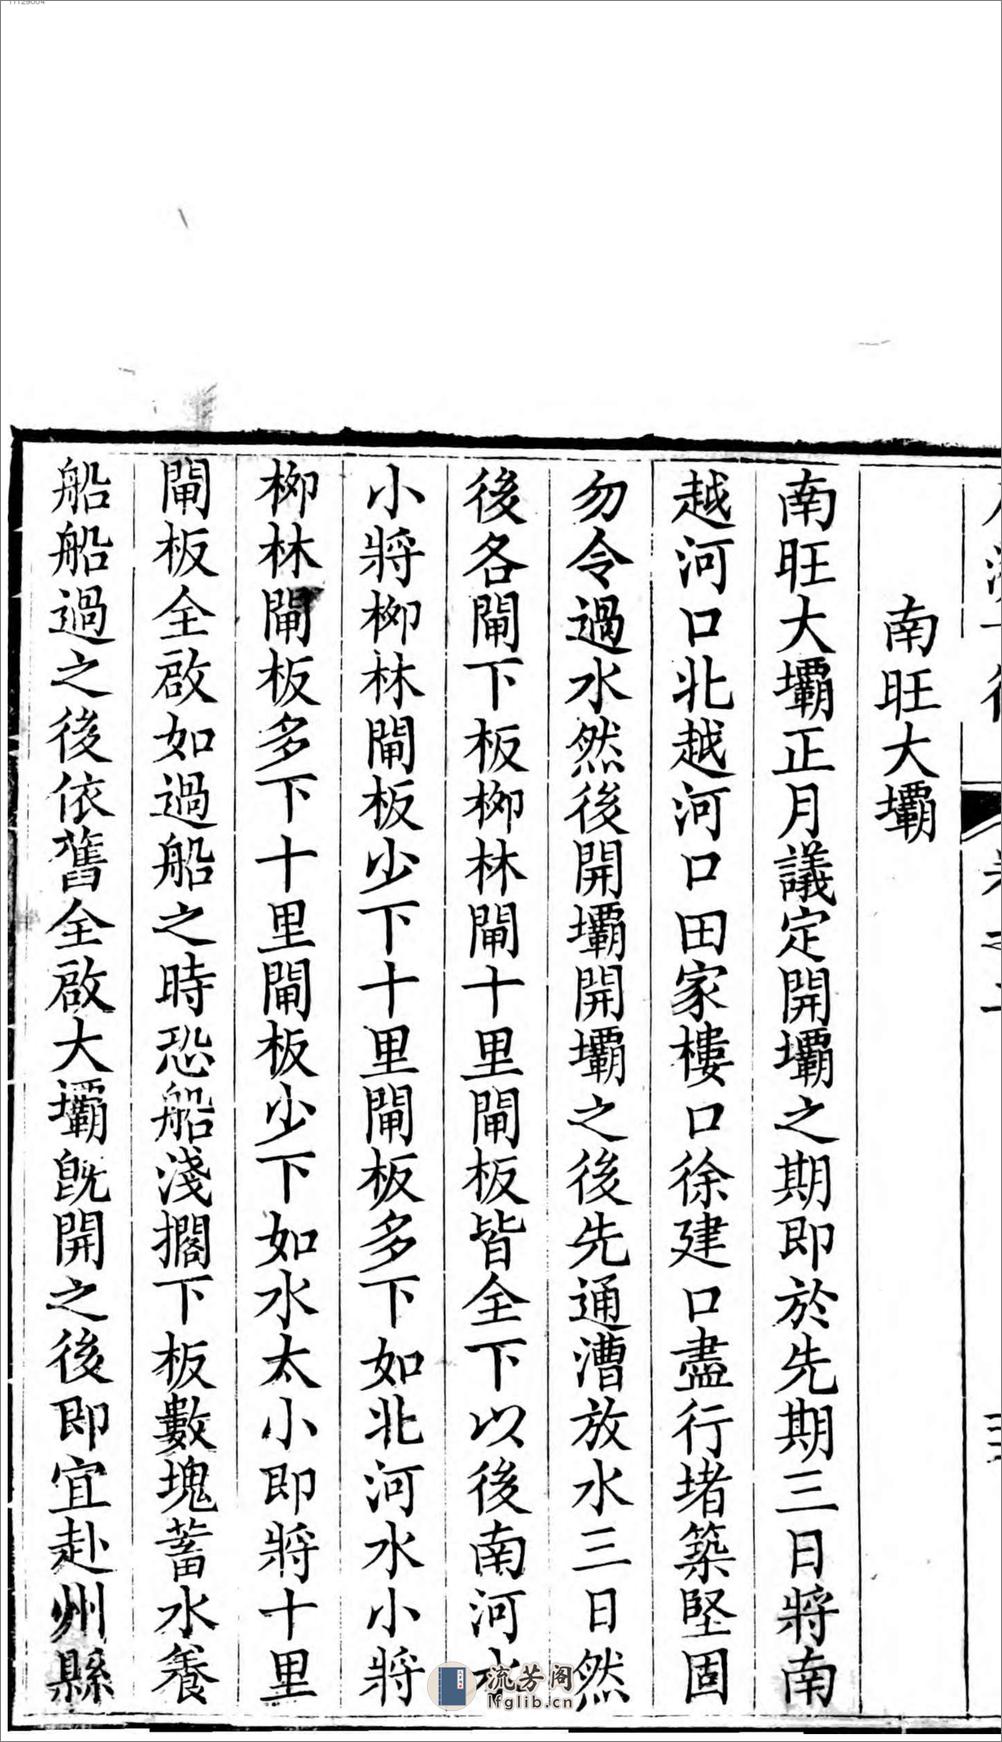 南旺大壩
南旺大壩正月議定開壩之期即於先期三日將南
越河口北越河口田家樓口徐建口盡行堵築堅固
勿令過水然後開壩開壩之後先通漕放水三日然
後各閘下板栁林閘十里閘板皆全下以後南河水
小將栁林閘板少下十里閘板多下如北河水小將
栁林閘板多下十里閘板少下如水太小即將十里
閘板全啟如過船之時恐船淺擱下板數塊蓄水養
船船過之後依舊全啟大壩旣開之後即宜赴州縣
流芳阁
lfglib.cn